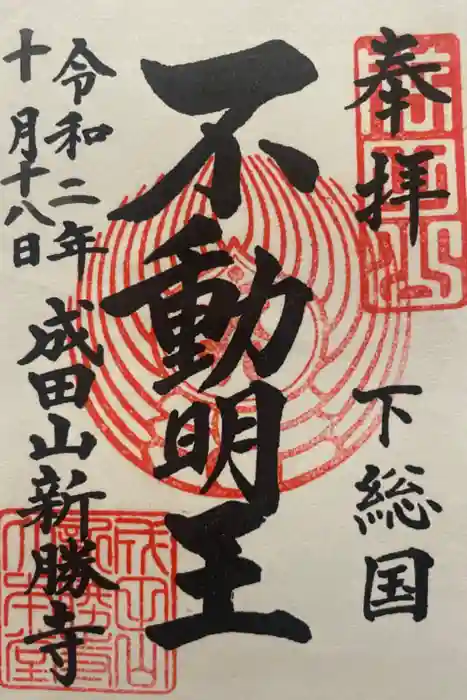 奉拝
下総国
不動明王
令和二年
十月十八日
成田山新勝寺
成田山
新勝寺
大本堂